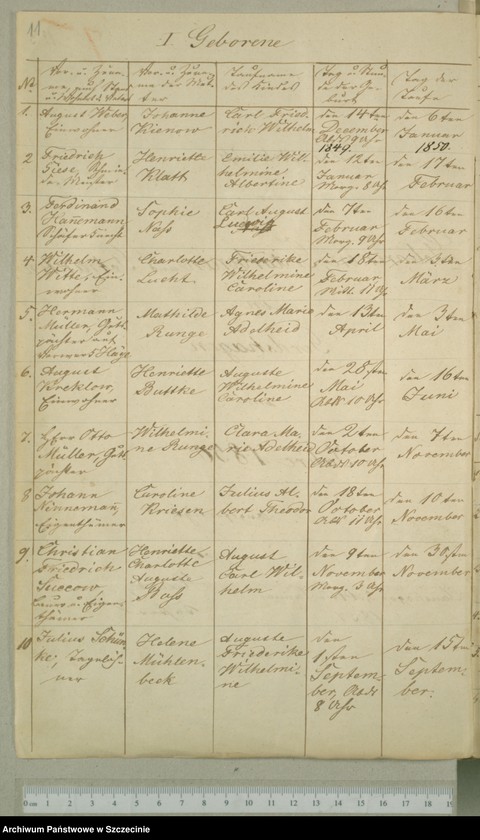 11
I Geborene
No
Vor- u. Zuna-
Vor- u. Zuna-
me der Mut-
ter
Taufname
des Kindes
Tag u Stun
de der Ge-
burt
Tag der
Taufe
1.
August Weber,
Einwohner
Johanne
Kienow
Carl Fried-
rich Wilhelm
den 14ten
December
Abds 9 Uhr
1849.
den 6ten
Januar
1850.
2
Friedrich
Henriette
Klatt
Emilie Wil-
helmine
Albertine
den 12ten
Januar
Morg. 8 Uhr
den 17ten
Februar
3.
Ferdinand
Hannemann
Sophie
Nass
Carl August
Ludwig
den 7ten
Februar
Morg. 9 Uhr
den 16ten
Februar
4.
Wilhelm
Witte, Ein-
wohner
Charlotte
Lucht
Friederike
Wilhelmine
Caroline
den 18ten
Februar
Mitt. 11 Uhr
den
März
5.
Hermann
Müller, Guts-
pächter auf
Mathilde
Runge
Agnes Marie
Adelheid
den 13ten
April
den 3ten
Mai
6.
August
Kreklow,
Einwohner
Henriette
Buttke
Auguste
Wilhelmine
Caroline
den 28sten
Mai
Abds 10 Uhr
den 16ten
Juni
7.
Otto
Müller, Guts-
pächter
Wilhelmi-
ne Runge
Clara Ma-
rie Adelheid
den 2ten
October
Abds 10 Uhr
den 7ten
November
8
Johann
Ninnemann,
Eigenthümer
Caroline
Kriesen
Julius Al-
bert Theodor
den 18ten
October
Abds 11 Uhr
den 10ten
November
9.
Christian
Friedrich
Bauer u. Eigen-
thümer
Henriette
Charlotte
Auguste
August
Carl Wil-
helm
den 9ten
November
Morg. 3 Uhr
den 30sten
November
10
Julius
Tagelöh-
ner
Helene
Mühlen-
beck
Auguste
Friederike
Wilhelmi-
ne
den
1sten
Septem-
ber, Abds
8 Uhr
den 15ten
Septem-
ber.
0 cm 1 2 3 4 5 6 7 8 9 10 11 12 13 14 15 16 17 18 19
Archiwum Państwowe w Szczecinie